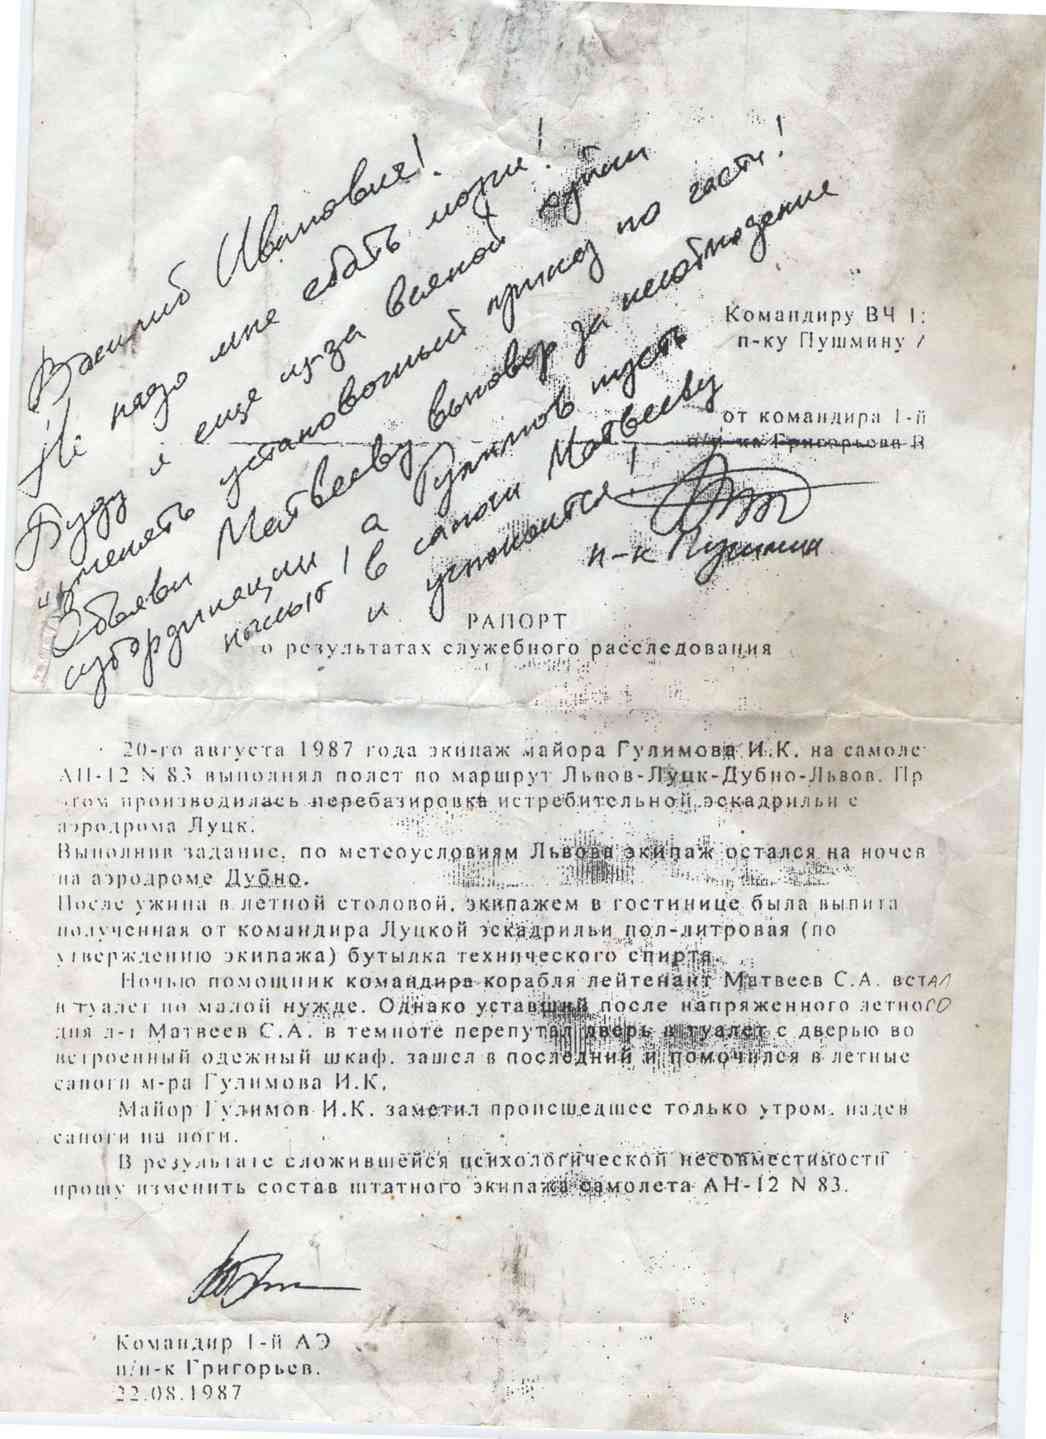 Василий Иванович!
Не надо мне ебать мозги!
Буду я еще из-за всякой хуйни
изменять установочный приказ по части!
Объяви Матвееву выговор за несоблюдение
субординации, а Гулимов пусть
нассыт в сапоги Матвееву
и успокоится!
п-к Пушмин
Командиру ВЧ 1
п-ку Пушмину
от командира 1-й
п/п-ка Григорьева В
РАПОРТ
о результатах служебного расследования
20-го августа 1987 года экипаж майора Гулимова И.К. на самоле
АН-12 N 83 выполнял полет по маршрут Львов-Луцк-Дубно-Львов. Пр
этом производилась перебазировка истребительной эскадрильи с
аэродрома Луцк.
Выполнив задание, по метеоусловиям Львова экипаж остался на ночев
на аэродроме Дубно.
После ужина в летной столовой, экипажем в гостинице была выпита
полученная от командира Луцкой эскадрильи пол-литровая (по
утверждению экипажа) бутылка технического спирта.
Ночью помощник командира корабля лейтенант Матвеев С.А. встал
в туалет по малой нужде. Однако уставший после напряженного летного
дня л-т Матвеев С.А. в темноте перепутал дверь в туалет с дверью во
встроенный одежный шкаф, зашел в последний и помочился в летные
сапоги м-ра Гулимова И.К.
Майор Гулимов И.К. заметил происшедшее только утром, надев
сапоги на ноги.
В результате сложившейся психологической несовместимости
прошу изменить состав штатного экипажа самолета АН-12 N 83.
Командир 1-й АЭ
п/п-к Григорьев.
22.08.1987